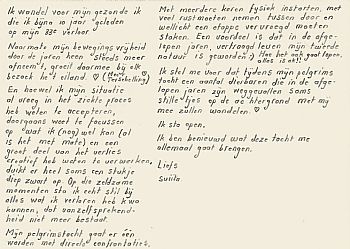 Ik wandel voor mijn gezonde ik
die ik bijna 10 jaar geleden
op mijn 33e verloor.
Naarmate mijn bewegingsvrijheid
door de jaren heen steeds meer
afneemt, groeit daarmee bij elk
bezoek het eiland. ♡ (Mont ♡
Terschelling)
En hoewel ik mijn situatie
al vroeg in het ziekte proces
heb weten te accepteren,
doorgaans weet te focussen
op wat ik (nog) wel kan (of
is het met mate) en een
groot deel van het verlies
creatief heb weten te verwerken,
duikt er heel soms een stukje
diep zwart op. Op die zeldzame
momenten sta ik echt stil bij
alles wat ik verloren heb k'wa
kunnen, dat vanzelfsprekend-
heid niet meer bestaat.
Mijn pelgrimstocht gaat er één
worden met directe confrontaties.
Met meerdere keren fysiek instorten, met
veel rustmoeten nemen tussen door en
wellicht een etappe vervroegd moeten
staken. Een voordeel is dat in de afge-
lopen jaren, vertraagd leven mijn tweede
natuur is geworden ;) Hoe het ook gaat lopen,
alles is ok!!
Ik stel me voor dat tijdens mijn pelgrims
tocht een aantal dierbaren die in de afge-
lopen jaren zijn weggevallen soms
stilletjes op de achtergrond met mij
mee zullen wandelen. ♡
Ik sta open.
Ik ben benieuwd wat deze tocht me
allemaal gaat brengen.
Liefs